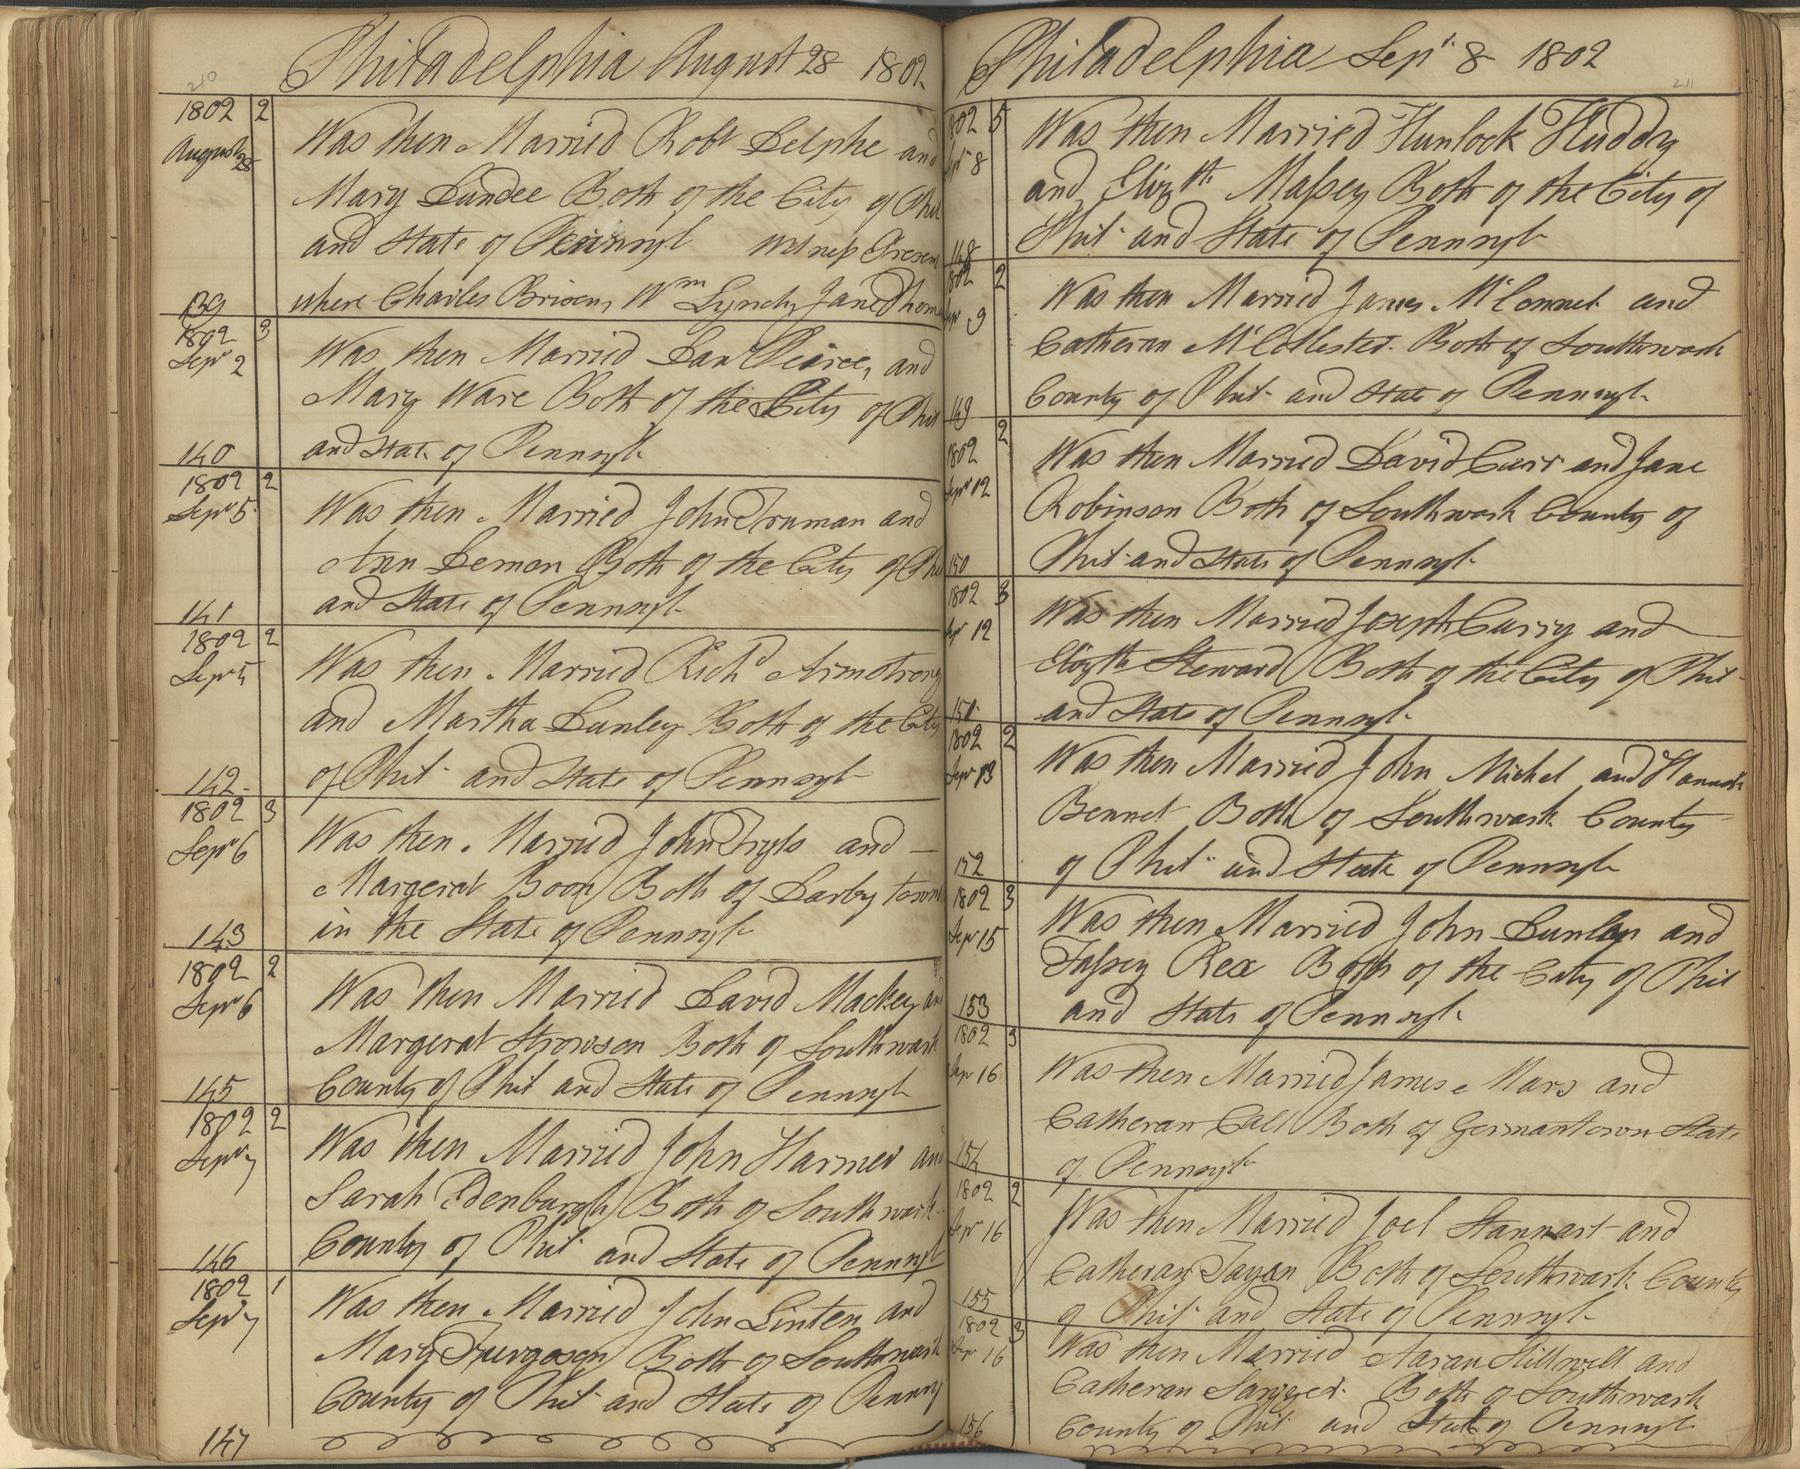 210
Philadelphia August 28 1802
1802 2
August 28
Was then Married Robt Delphe and
Mary Dundee Both of the City of Phil
and State of Pennsyl Witness Present
where Charles Brison, Wm Lynch, Jane Thom
139
1802 3
Sepr 2
Was then Married Danl Peirce, and
Mary Ware Both of the City of Phil
and State of Pennsyl
140
1802 2
Sepr 5
Was then Married John Truman and
Ann Demon Both of the City of Phil
and State of Pennsyl
141
1802 2
Sepr 5
Was then Married Richd Armstrong
and Martha Dunley Both of the City
of Phil and State of Pennsyl
142
1802 3
Sepr 6
Was then Married John Fryls and
Margerat Boon Both of Darby town
in the State of Pennsyl
143
1802 2
Sepr 6
Was then Married David Mackey and
Margerat Strowson Both of Southwark
County of Phil and State of Pennsyl
145
1802 2
Sepr 7
Was then Married John Harmer and
Sarah Edenburgh Both of Southwark
County of Phil and State of Pennsyl
146
1802 1
Sepr 7
Was then Married John Linten and
Mary Furgoson Both of Southwark
County of Phil and State of Pennsy
147
211
Philadelphia Sepr 8 1802
1802 5
Sepr 8
Was then Married Hunlock Huddy
and Elizth Massey Both of the City of
Phil and State of Pennsyl
148
1802 2
Sepr 9
Was then Married James McConnel and
Catheran McCollester Both of Southwark
County of Phil and State of Pennsyl
149
1802 2
Sepr 12
Was then Married David Carr and Jane
Robinson Both of Southwark County of
Phil and State of Pennsyl
150
1802 3
Sepr 12
Was then Married Joseph Curry and
Elizth Steward Both of the City of Phil
and State of Pennsyl
151
1802 2
Sepr 13
Was then Married John Mickel and Hannah
Bennet Both of Southwark County
of Phil and State of Pennsyl
152
1802 3
Sepr 15
Was then Married John Dunlap and
Tassey Rex Both of the City of Phil
and State of Pennsyl
153
1802 3
Sepr 16
Was then Married James Mars and
Catheran Call Both of Germantown State
of Pennsyl
154
1802 2
Sepr 16
Was then Married Joel Stannart and
Catheran Tayon Both of Southwark County
of Phil and State of Pennsyl
155
1802 3
Sepr 16
Was then Married Aaran Stillwell and
Catheran Sanger Both of Southwark
County of Phil and State of Pennsyl
156